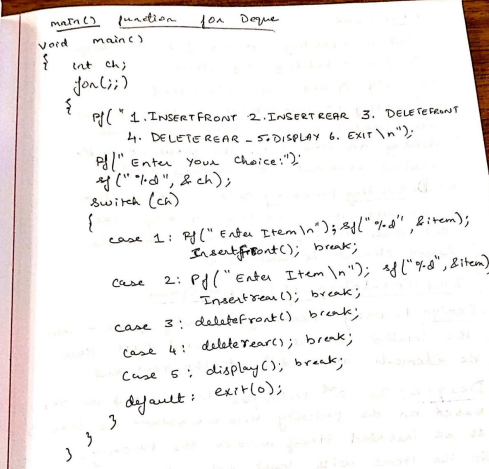 main() function for Deque
void main()
{
int ch;
for(;;)
{
Pf("1.INSERTFRONT 2.INSERTREAR 3. DELETEFRONT
4. DELETEREAR - 5.DISPLAY 6. EXIT\n");
Pf("Enter Your Choice:");
sf("%d", &ch);
Switch (ch)
{
case 1: Pf("Enter Item\n"); sf("%d", &item);
Insertfront(); break;
case 2: Pf("Enter Item\n"); sf("%d", &item)
Insertrear(); break;
case 3: deletefront() break;
case 4: deleterear(); break;
case 5: display(); break;
default: exit(0);
}
}
}